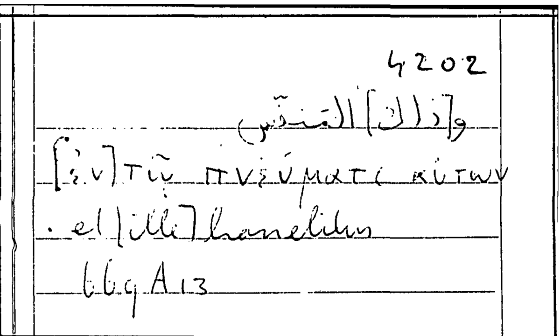 4202
و[ذاك] المتنفّس
[ἐν] τῷ πνεύματι αὐτῶν
. el [ille] hanelitus
66g A 13